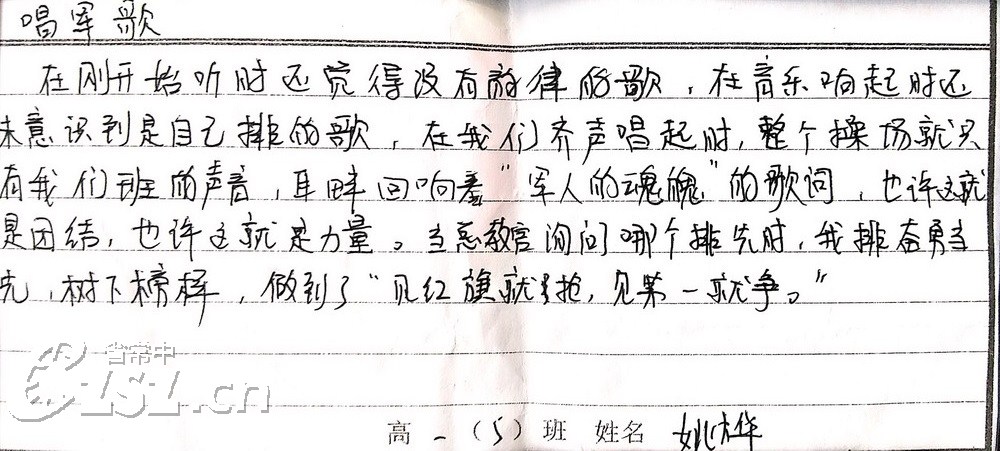 唱军歌
在刚开始听时还觉得没有旋律的歌，在音乐响起时还
未意识到是自己排的歌，在我们齐声唱起时，整个操场就只
有我们班的声音，耳畔回响着“军人的魂魄”的歌词，也许这就
是团结，也许这就是力量。当总教官询问哪个排先时，我排奋勇当
先，树下榜样，做到了“见红旗就扛抢，见第一就争。”
省常中
CZSZ.cn
高一（5）班 姓名 姚桦